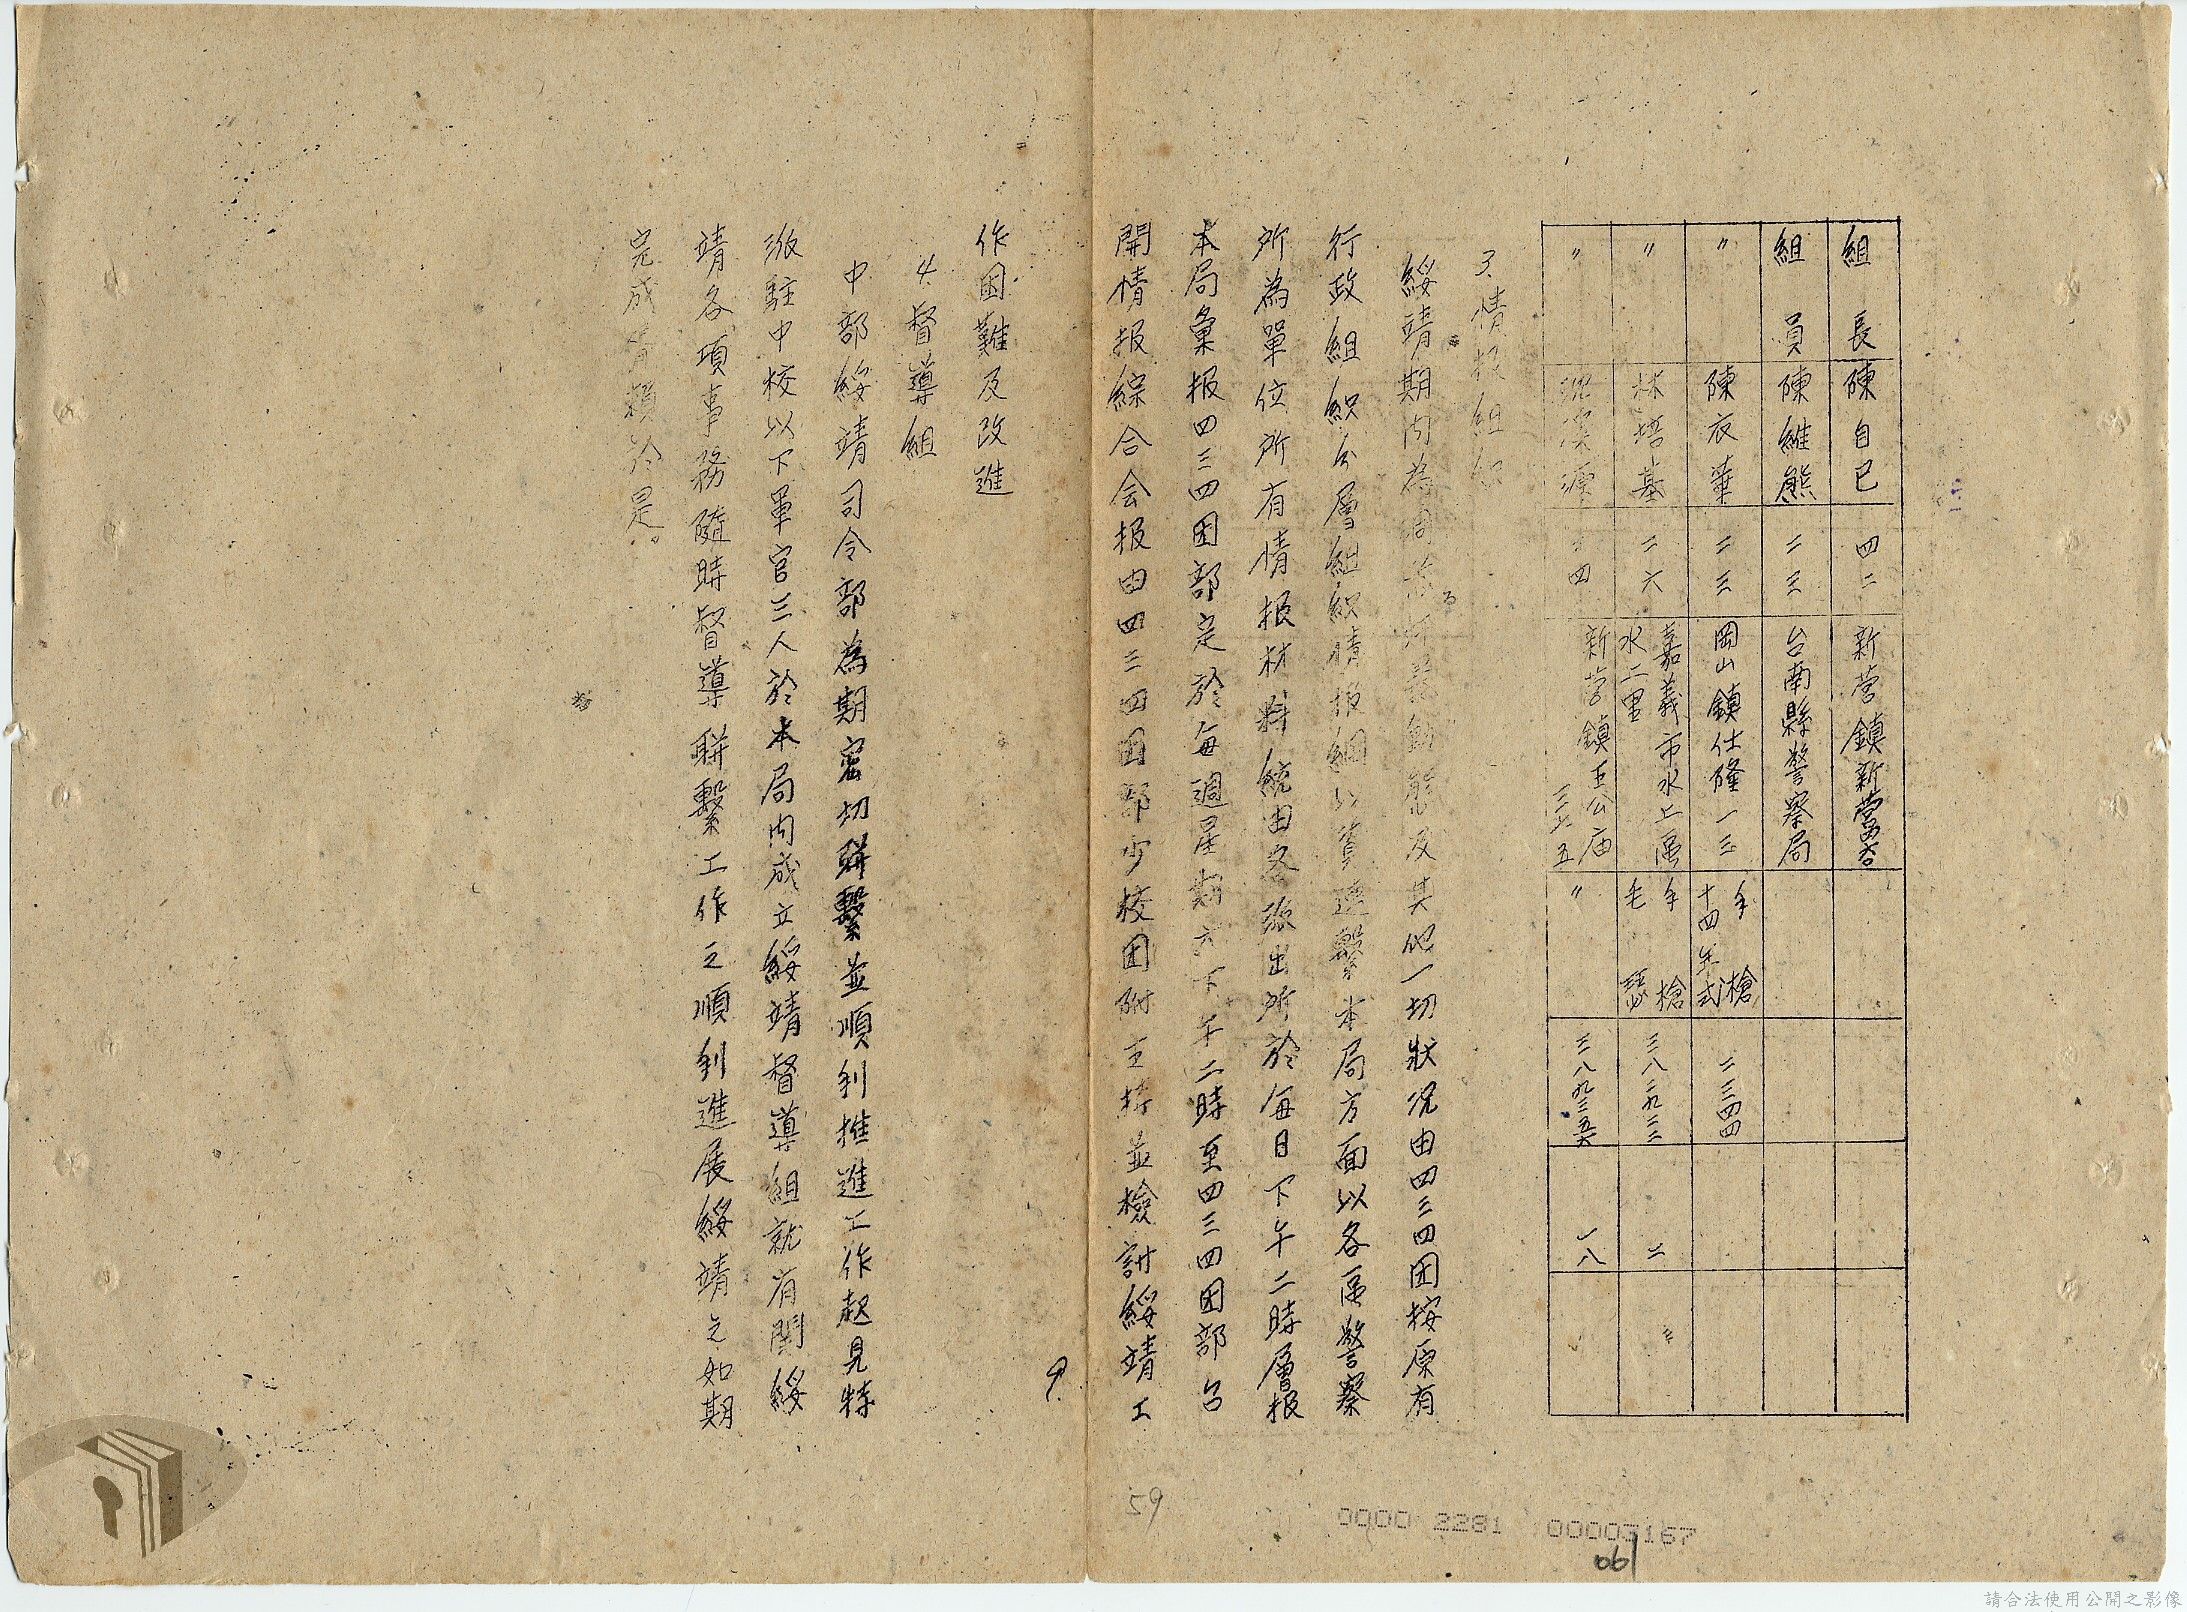 組長 陳自巳 四二 新營鎮新營
組員 陳維熊 二三 台南縣警察局
〃 陳衣華 二三 岡山鎮仕隆一三 十四年式手槍 二三四四
〃 林培基 二六 嘉義市水上區水上里 毛瑟手槍 三八二九三三 二
〃 源 四 新營鎮王公庙 〃 一八
3.情报組織
綏靖期内為 動態及其他一切狀况由四三四团按原有
行政組織分層組織情报網以資連繫本局方面以各區警察
所為單位所有情报材料統由各派出所於每日下午二時層报
本局彙报四三四团部定於每週星期六下午二時至四三四团部召
開情报綜合会报由四三四团部少校团附主持並檢討綏靖工
作困難及改進
4.督導組
中部綏靖司令部為期密切聯繫並順利推進工作起見特
派駐中校以下軍官三人於本局内成立綏靖督導組就有關綏
靖各項事務隨時督導聯繫工作之順利進展綏靖之如期
完成有賴於是。
9.
59
0000 2281 00005167
061
請合法使用公開之影像